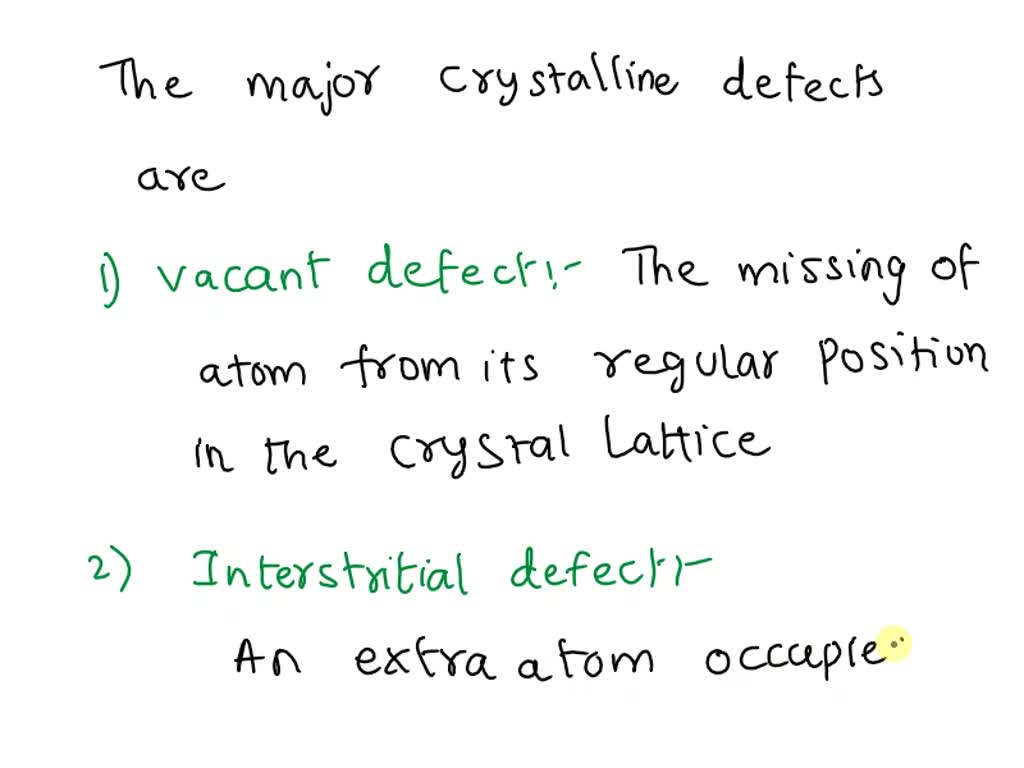 The major crystalline defects
are
1) vacant defect:- The missing of
atom from its regular position
in the crystal Lattice
2) Interstritial defect:-
An extra atom occupie